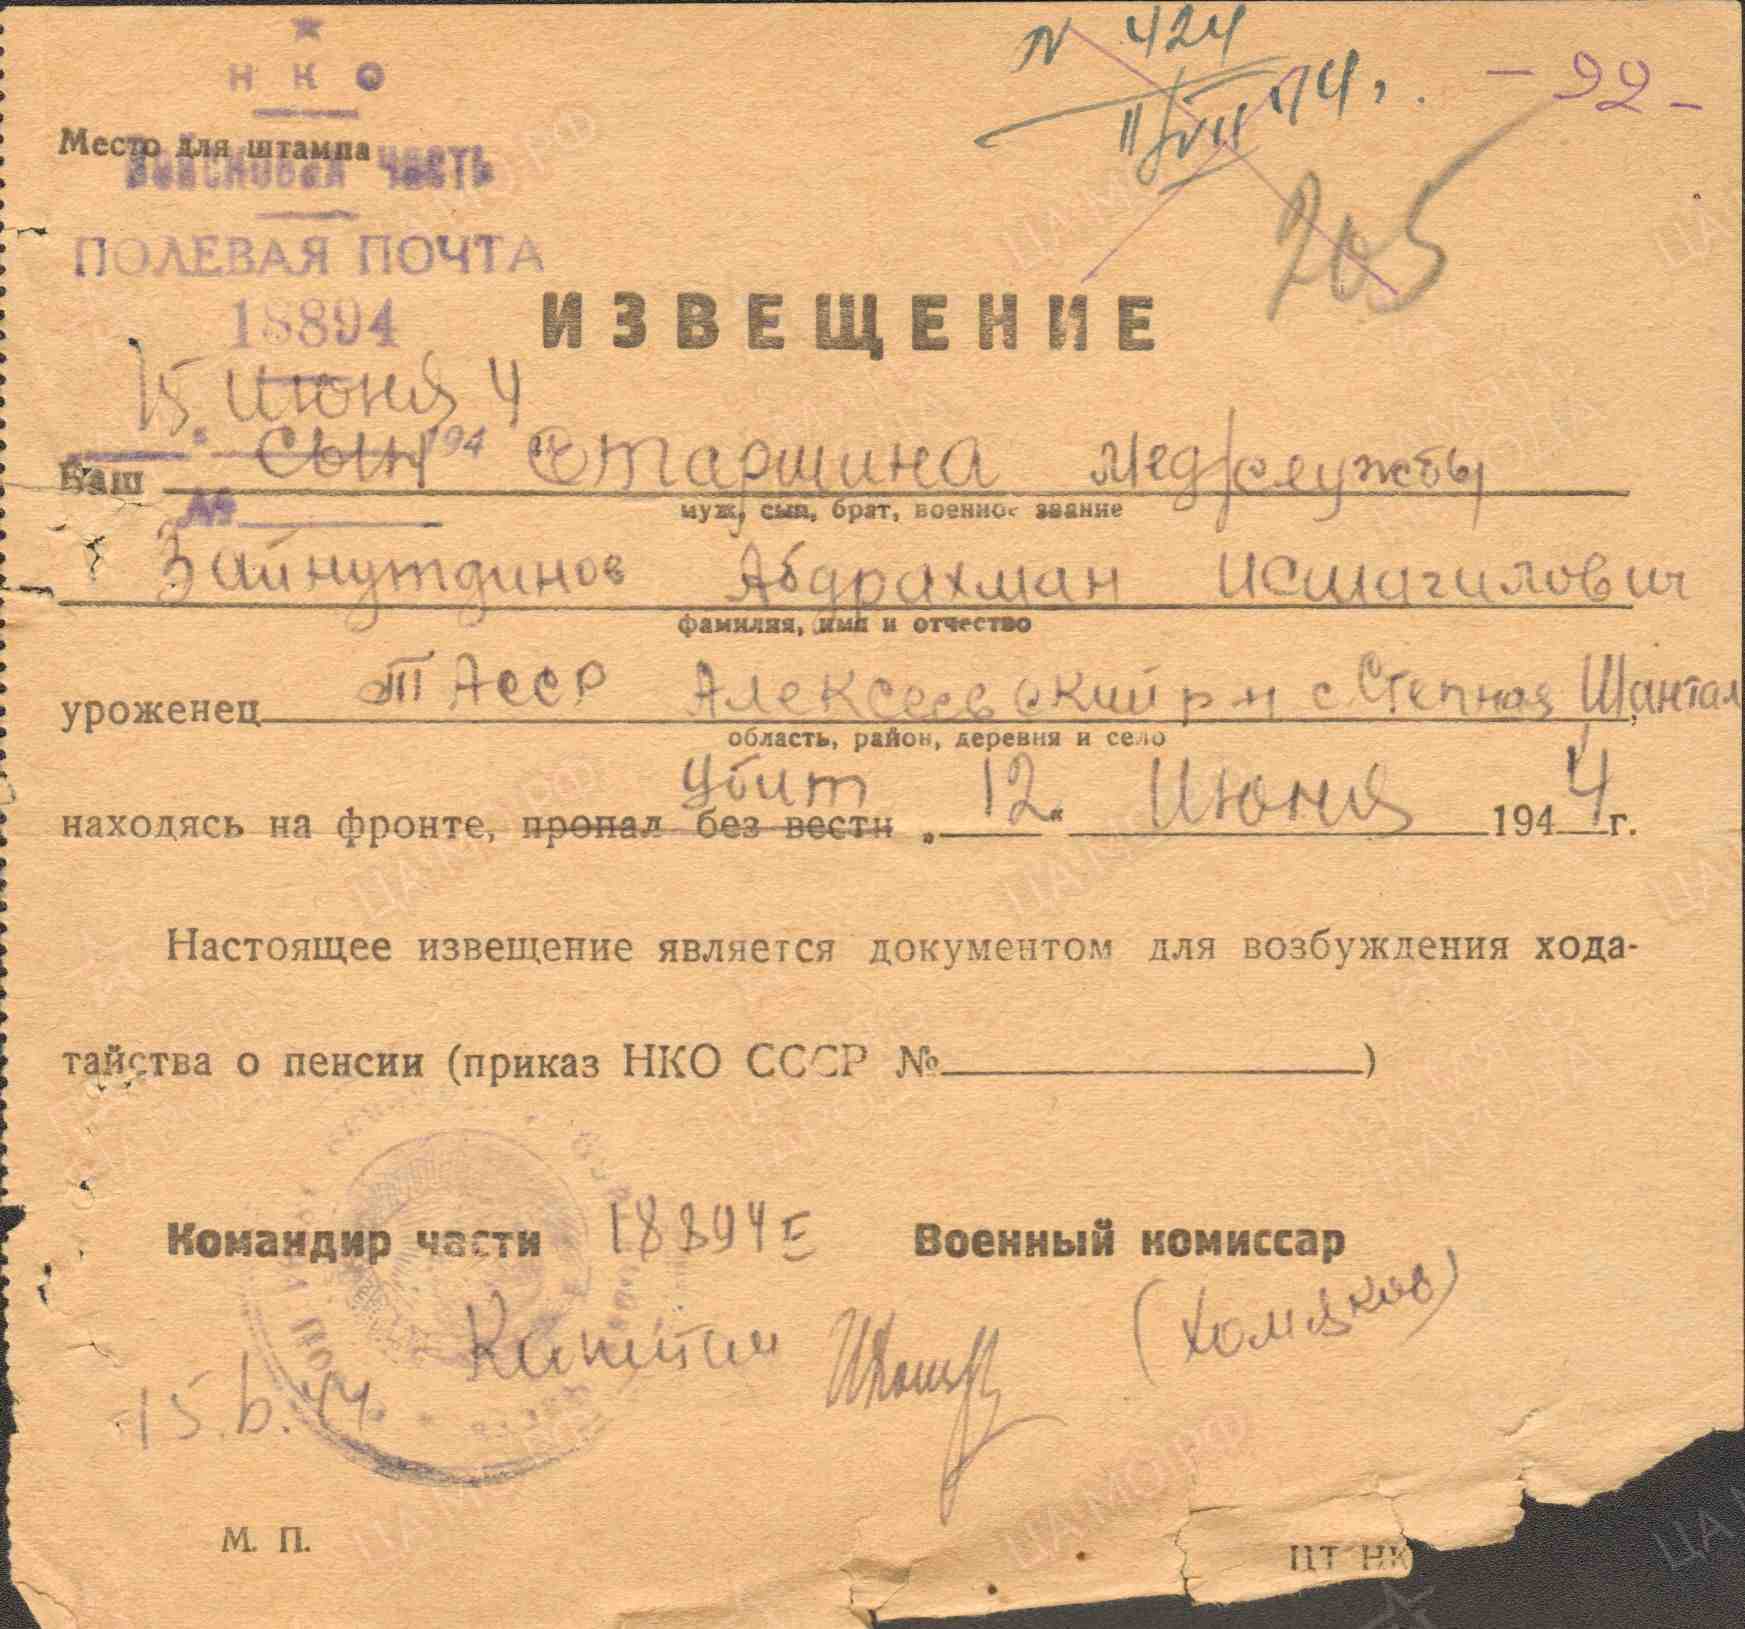 НКО
Место для штампа
Войсковая часть
ПОЛЕВАЯ ПОЧТА
18894
15. июня 4
194
№
N 424
11/VII 44.
- 92 -
205
ИЗВЕЩЕНИЕ
Ваш сын старшина мед/службы
муж, сын, брат, военное звание
Зайнутдинов Абдрахман Исмагилович
фамилия, имя и отчество
уроженец ТАССР Алексеевский р-н с Степная Шантал
область, район, деревня и село
убит
находясь на фронте, пропал без вести „12“ июня 1944 г.
Настоящее извещение является документом для возбуждения хода-
тайства о пенсии (приказ НКО СССР № )
Командир части 18894 Е Военный комиссар
Капитан (Хомяков)
15.6.44.
М. П.
ЦТ НК